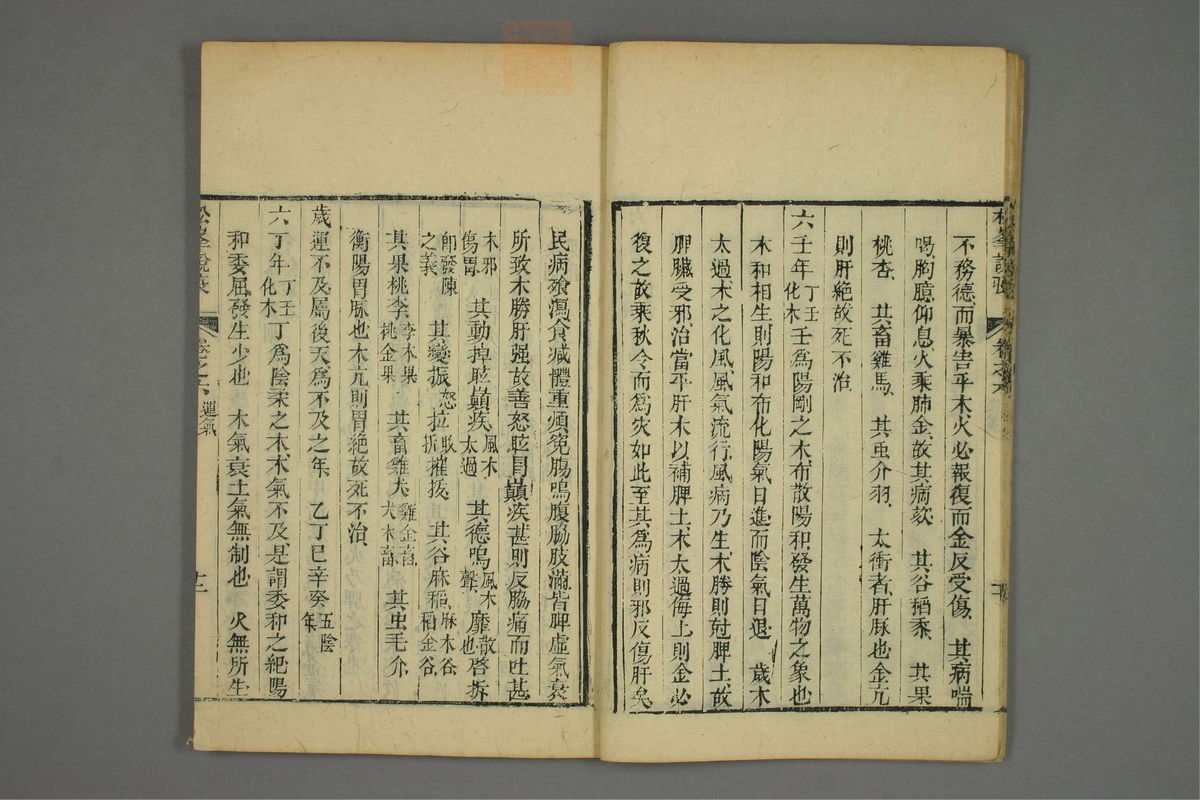 松峯說疫
卷之六
不務德而暴告平木火必報復而金反受傷其病喘
喝胸臆仰息火乘肺金故其病欬 其谷稻黍 其果
桃杏 其畜雞馬 其虫介羽 太衝者肝脉也金亢
則肝絕故死不治
六壬年丁壬化木壬爲陽剛之木布散陽和發生萬物之象也
木和相生則陽和布化陽氣日進而陰氣日退 歲木
太過木之化風風氣流行風病乃生木勝則尅脾土故
脾臟受邪治當平肝木以補脾土木太過侮土則金必
復之故乘秋令而爲灾如此至其爲病則邪反傷肝矣
民病飱瀉食減體重煩冤腸鳴腹脇肢滿皆脾虛氣衰
所致木勝肝强故善怒眩冒巔疾甚則反脇痛而吐甚
木邪傷胃 其動掉眩巔疾風木太過 其德鳴風木聲靡散也啓拆
卽發陳之義 其變振怒拉㫁摧拔 其谷麻稻麻木谷稻金谷
其果桃李李木果桃金果 其畜雞犬雞金畜犬木畜 其虫毛介
衡陽胃脉也木亢則胃絕故死不治
歲運不及屬後天爲不及之年 乙丁巳辛癸五陰年
六丁年丁壬化木丁爲陰柔之木木氣不及是謂委和之紀陽
和委屈發生少也 木氣衰土氣無制也 火無所生
松峯說疫
卷之六 運氣
十一